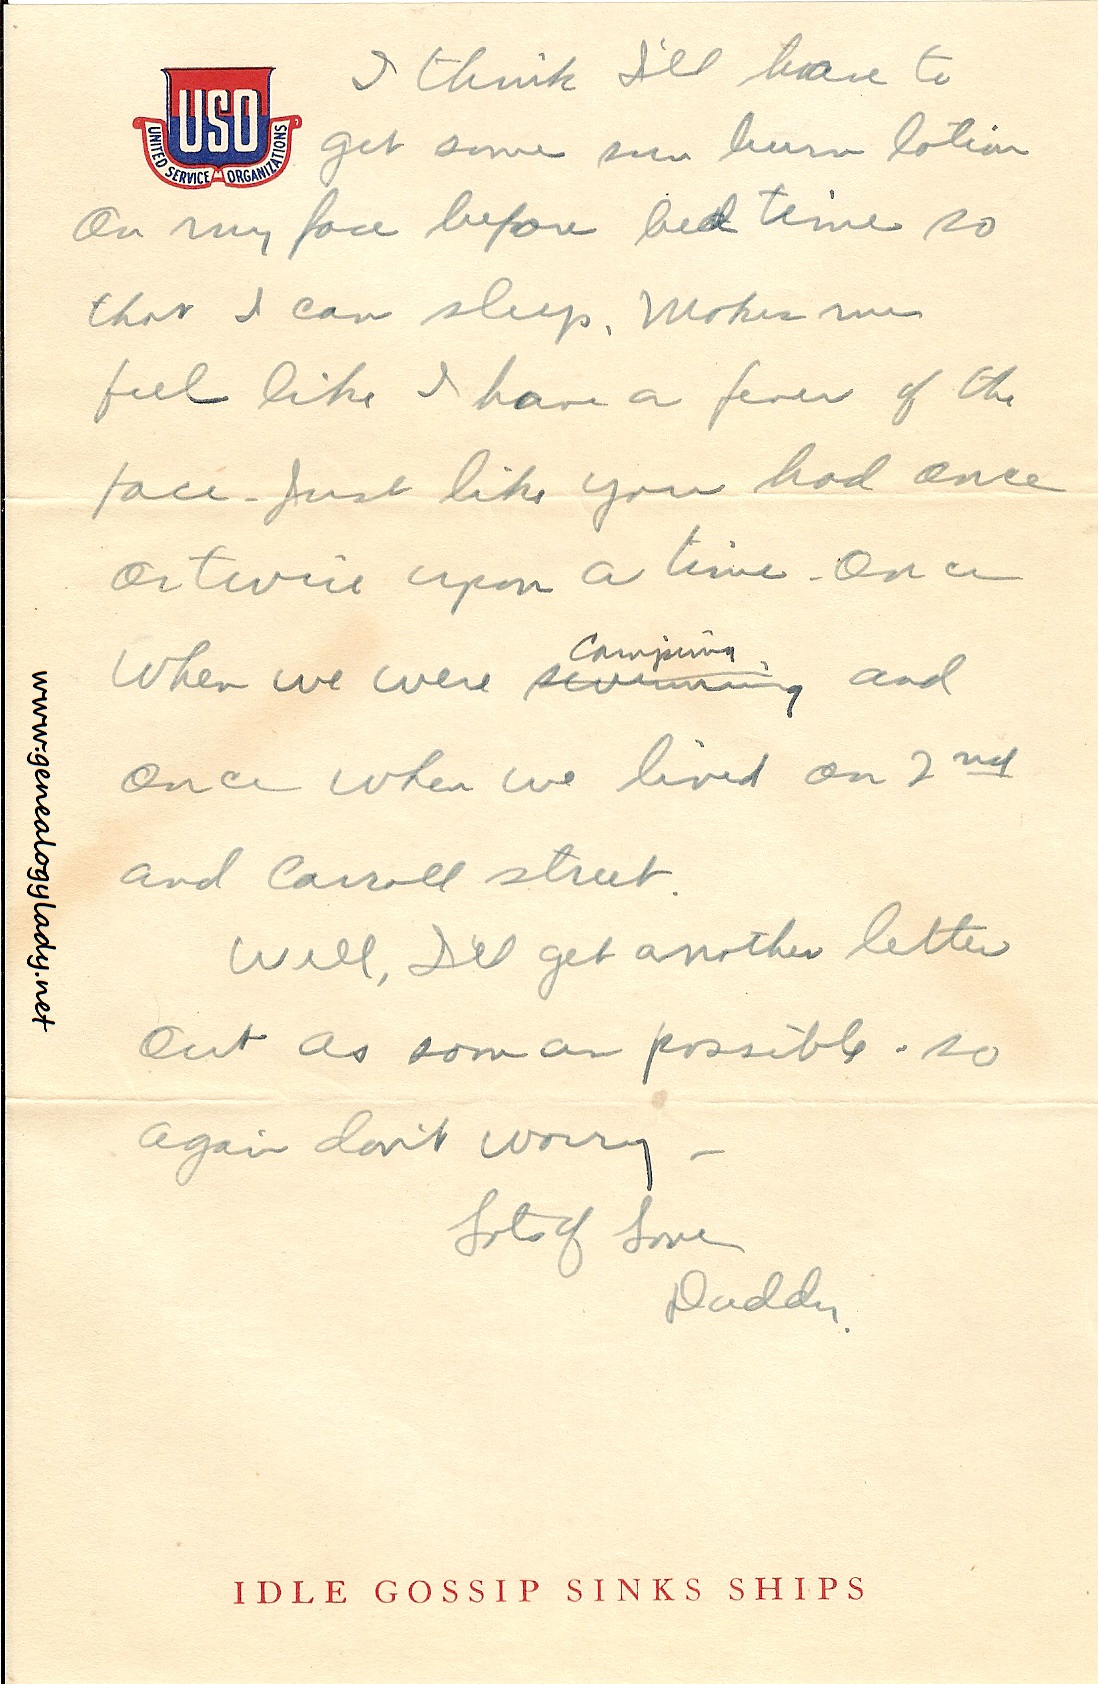 USO
UNITED SERVICE ORGANIZATIONS
I think I'll have to
get some sun burn lotion
on my face before bed time so
that I can sleep. Makes me
feel like I have a fever of the
face - Just like you had once
or twice upon a time - Once
when we were ~~swimming~~ Camping and
once when we lived on 2nd
and Carroll street.
Well, I'll get another letter
out as soon as possible - so
again don't worry -
Lots of Love
Daddy.
IDLE GOSSIP SINKS SHIPS
www.genealogylady.net